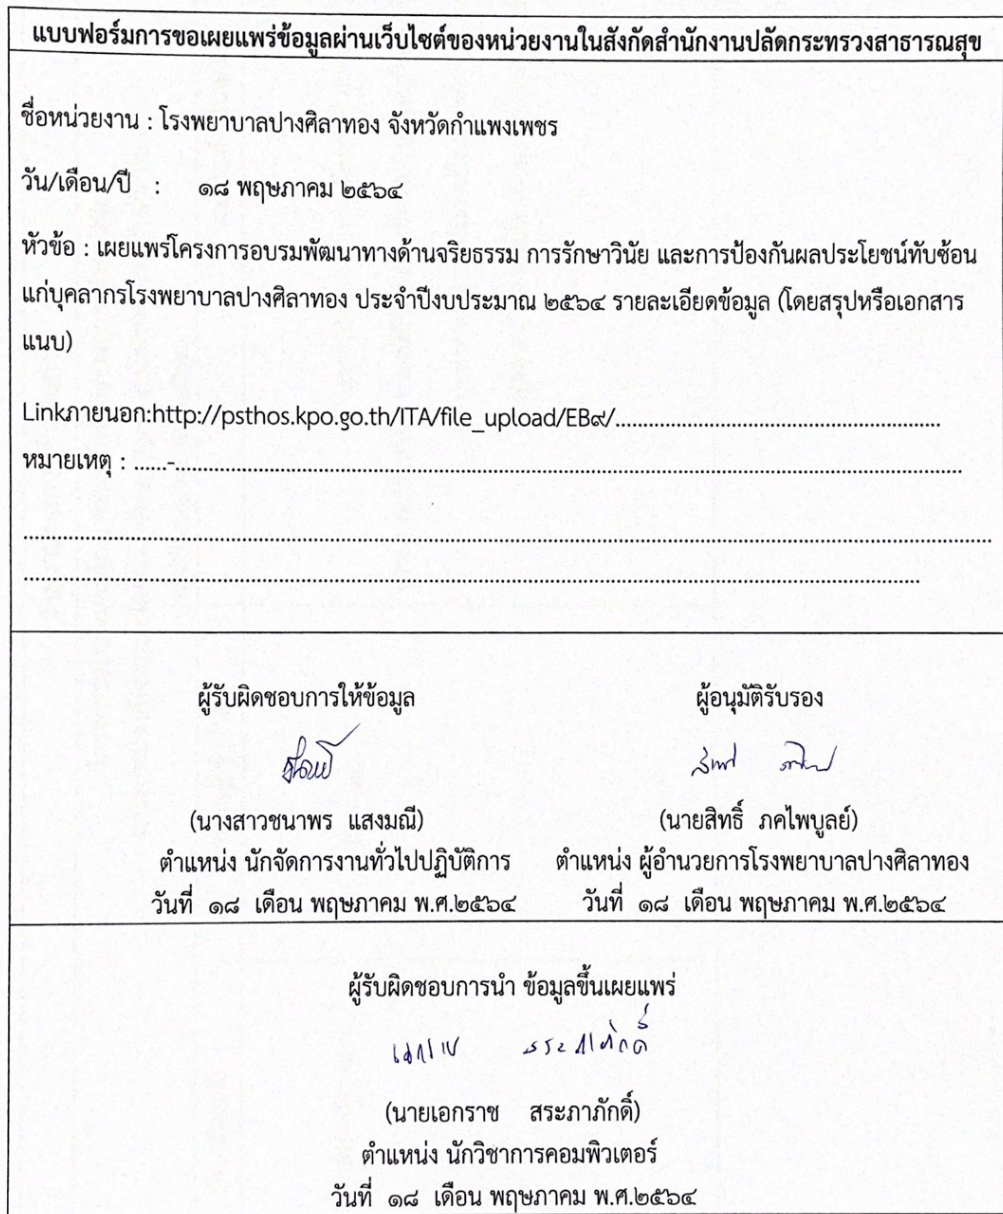 แบบฟอร์มการขอเผยแพร่ข้อมูลผ่านเว็บไซต์ของหน่วยงานในสังกัดสำนักงานปลัดกระทรวงสาธารณสุข
ชื่อหน่วยงาน : โรงพยาบาลปางศิลาทอง จังหวัดกำแพงเพชร
วัน/เดือน/ปี : ๑๘ พฤษภาคม ๒๕๖๔
หัวข้อ : เผยแพร่โครงการอบรมพัฒนาทางด้านจริยธรรม การรักษาวินัย และการป้องกันผลประโยชน์ทับซ้อน
แก่บุคลากรโรงพยาบาลปางศิลาทอง ประจำปีงบประมาณ ๒๕๖๔ รายละเอียดข้อมูล (โดยสรุปหรือเอกสาร
แนบ)
Linkภายนอก:http://psthos.kpo.go.th/ITA/file_upload/EB๙/.............................................................
หมายเหตุ : ......-....................................................................................................................................................
....................................................................................................................................................................................
........................................................................................................................................................................
ผู้รับผิดชอบการให้ข้อมูล ผู้อนุมัติรับรอง
(นางสาวชนาพร แสงมณี) (นายสิทธิ์ ภคไพบูลย์)
ตำแหน่ง นักจัดการงานทั่วไปปฏิบัติการ ตำแหน่ง ผู้อำนวยการโรงพยาบาลปางศิลาทอง
วันที่ ๑๘ เดือน พฤษภาคม พ.ศ.๒๕๖๔ วันที่ ๑๘ เดือน พฤษภาคม พ.ศ.๒๕๖๔
ผู้รับผิดชอบการนำ ข้อมูลขึ้นเผยแพร่
เอกราช สระภาภักดิ์
(นายเอกราช สระภาภักดิ์)
ตำแหน่ง นักวิชาการคอมพิวเตอร์
วันที่ ๑๘ เดือน พฤษภาคม พ.ศ.๒๕๖๔